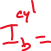 I_b^{cyl} =